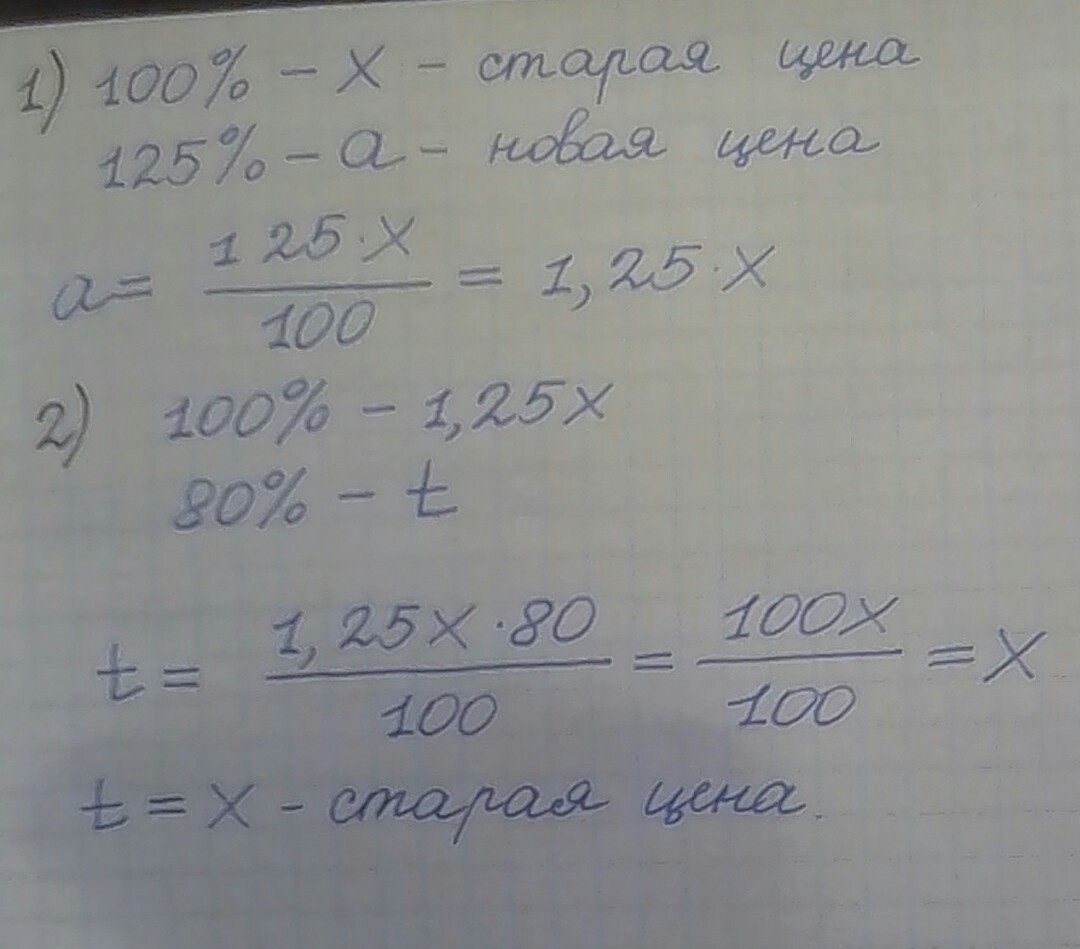 1) 100% – x – старая цена
125% – a – новая цена
a = 125·x / 100 = 1,25·x
2) 100% – 1,25x
80% – t
t = 1,25x·80 / 100 = 100x / 100 = x
t = x - старая цена.